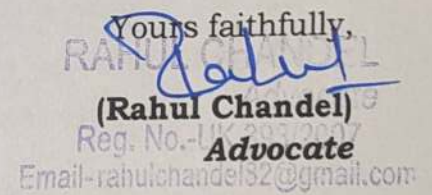 Yours faithfully,
RAHUL CHANDEL
Rahul
(Rahul Chandel)
Advocate
Reg. No.-UK 293/2007
Advocate
Email-rahulchandel82@gmail.com